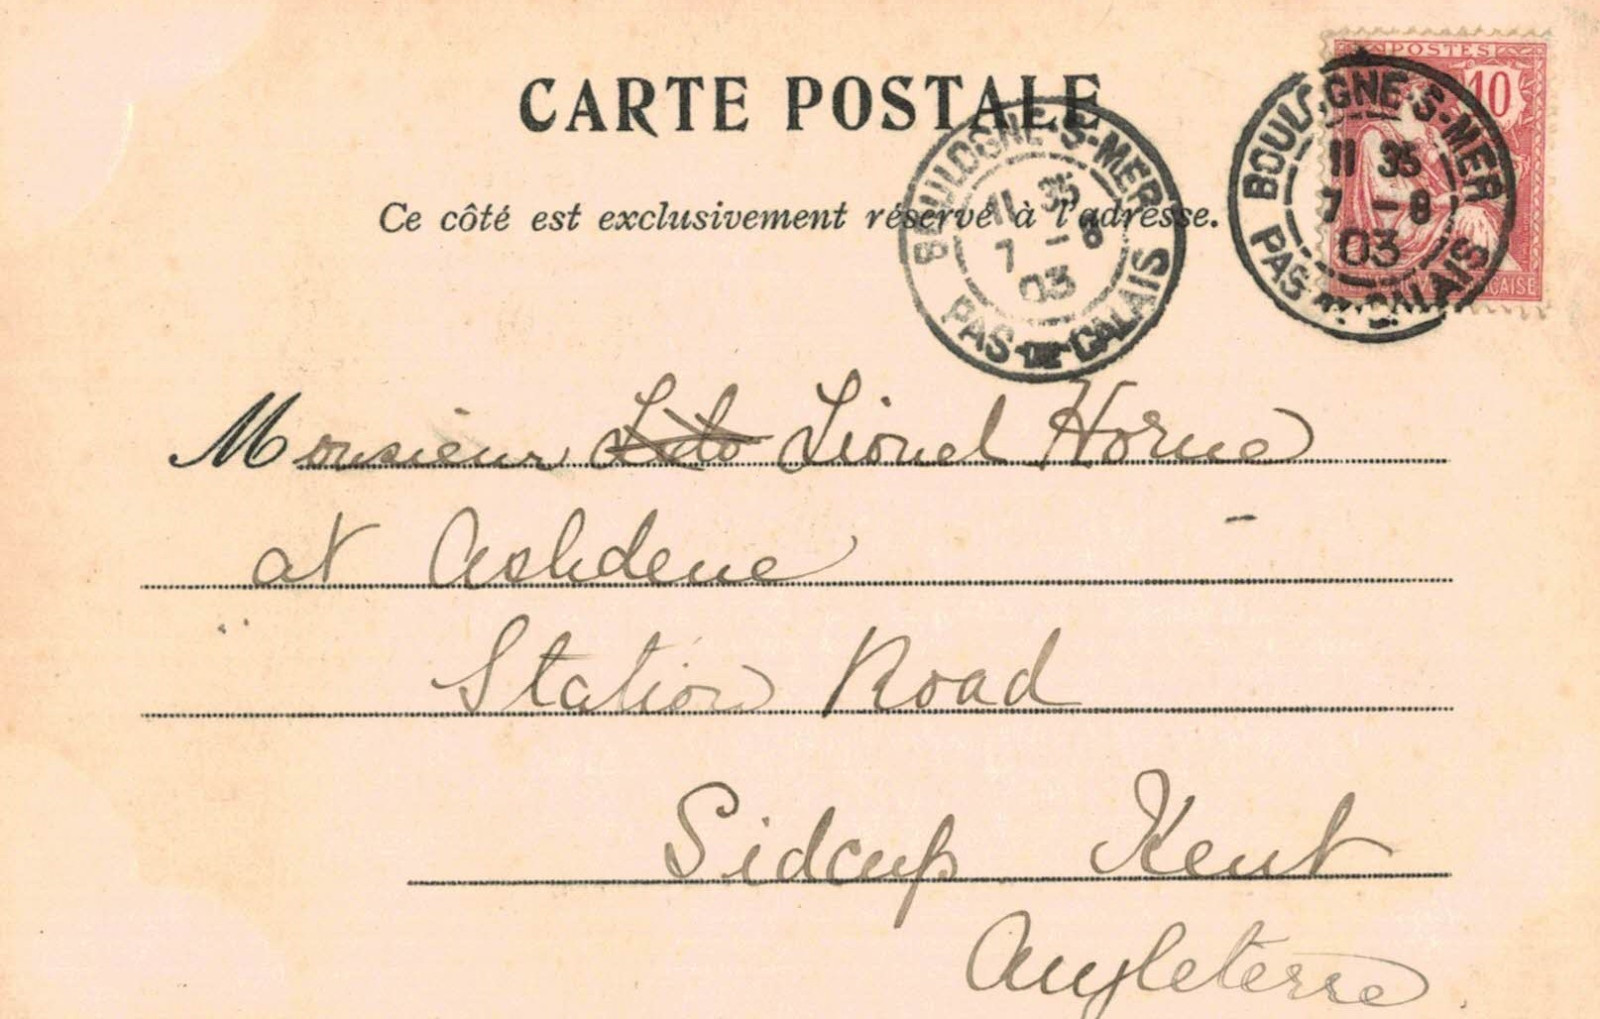 CARTE POSTALE
Ce côté est exclusivement réservé à l'adresse.
BOULOGNE-S-MER
11 35
7 - 8
03
PAS-DE-CALAIS
POSTES
10
BOULOGNE-S-MER
11 35
7 - 8
03
PAS-DE-CALAIS
Monsieur Lionel Horne
at Ashdene
Station Road
Sidcup Kent
Angleterre